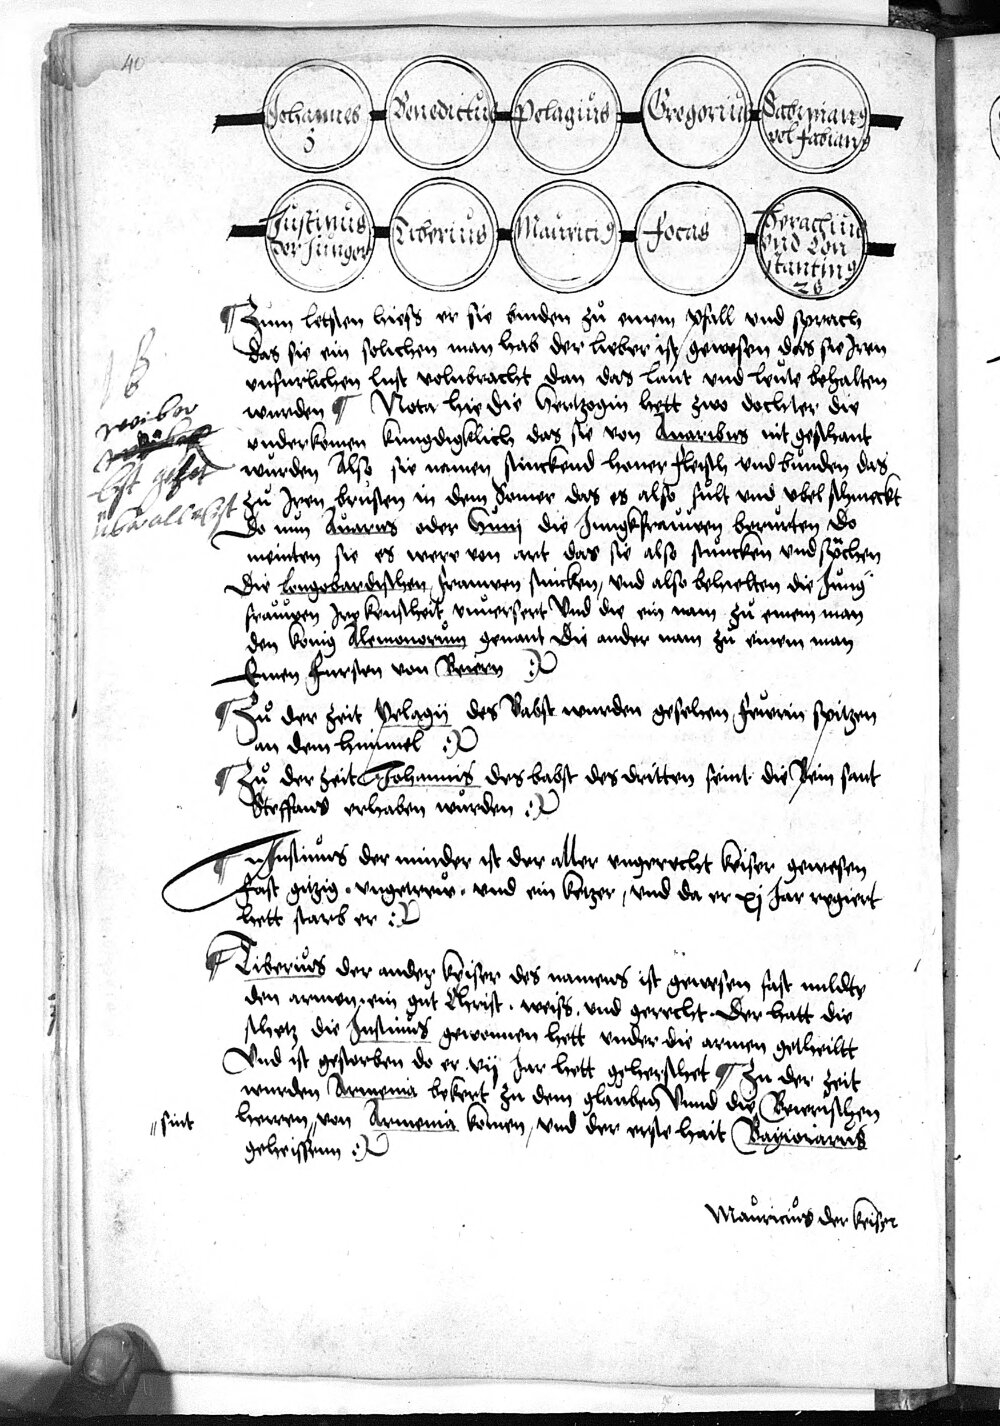 40
Johannes
3
Benedictus
Pelagius
Gregorius
Sabinianus
vel Fabianus
Justinus
der Junger
Tiberius
Mauricius
Focas
Heraclius
und Con
stantinus
28
¶ Zum letsten hiess er sie binden zů einem pfall und sprach
das sie ein solichen man hab der lieber ist gewesen das sie Iren
unfurlichen lust volnbracht dan das lant und leute behalten
wurden ¶ Nota hie die Hertzogin hett zwo dochter die
underkomen kungdigklich das sie von Avaribus nit geschant
wurden Also sie namen stinckend honer fleisch und bunden das
zů Iren brusten in dem Somer das es also fult und ubel schmeckt
Do nun Avarus oder Hunij die Jungkfrauwen berurten Do
meinten sie es were von art das sie also stuncken und sprchen
Die Longobardischen frauwen stincken, und also behielten die Jung
frauwen Ire keuscheit unversert Und die ein nam zu einem man
den konig Alemonorum genant Die ander nam zů einem man
Einen Fursten von Beiern
weiber
list gehet
uber alle list
¶ Zů der zeit Pelagij des Babst wurden gesehen feurin spitzen
an dem himmel
¶ Zů der zeit Johannis des babst des dritten seint die bein sant
Steffans erhaben wurden
¶ Justinus der minder ist der aller ungerecht keiser gewesen
fast gitzig, ungetreuw, und ein ketzer, und da er xj Jar regiert
hett starb er
¶ Tiberius der ander keiser des namens ist gewesen fast milde
den armen, ein gut Christ, weiss, und gerecht. Der hatt die
schetz die Justinus gewonnen hett under die armen getheiltt
Und ist gestorben do er vij Jar hett geherschet ¶ Zu der zeit
wurden Armenia bekert zu dem glauben Unnd die Beierischen
herren, von Armenia komen, und der erste hait Bagioiarus
geheissenn
sint
Mauricius der keiser